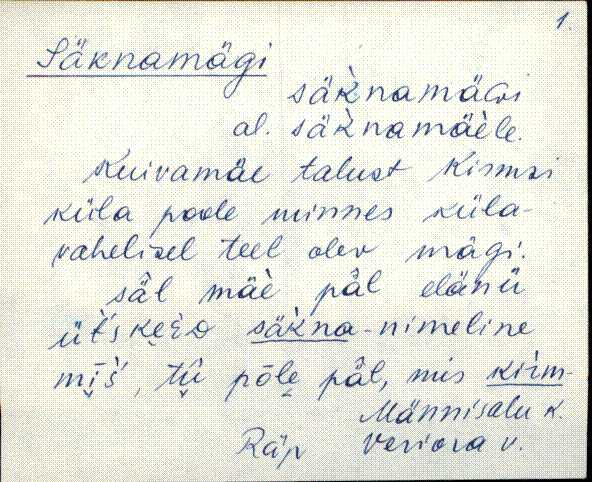 1.
Säknamägi
säk̀namäGi
al. säk̀namäèle.
Kuivamäe talust Kirmsi
küla poole minnes küla-
vahelisel teel olev mägi.
sä̂l mäè pä̂l elänü
säk̀na-nimeline
mīš́, tū pōle pä̂l, mis kirm-
Männisalu k.
Räp Veriora v.